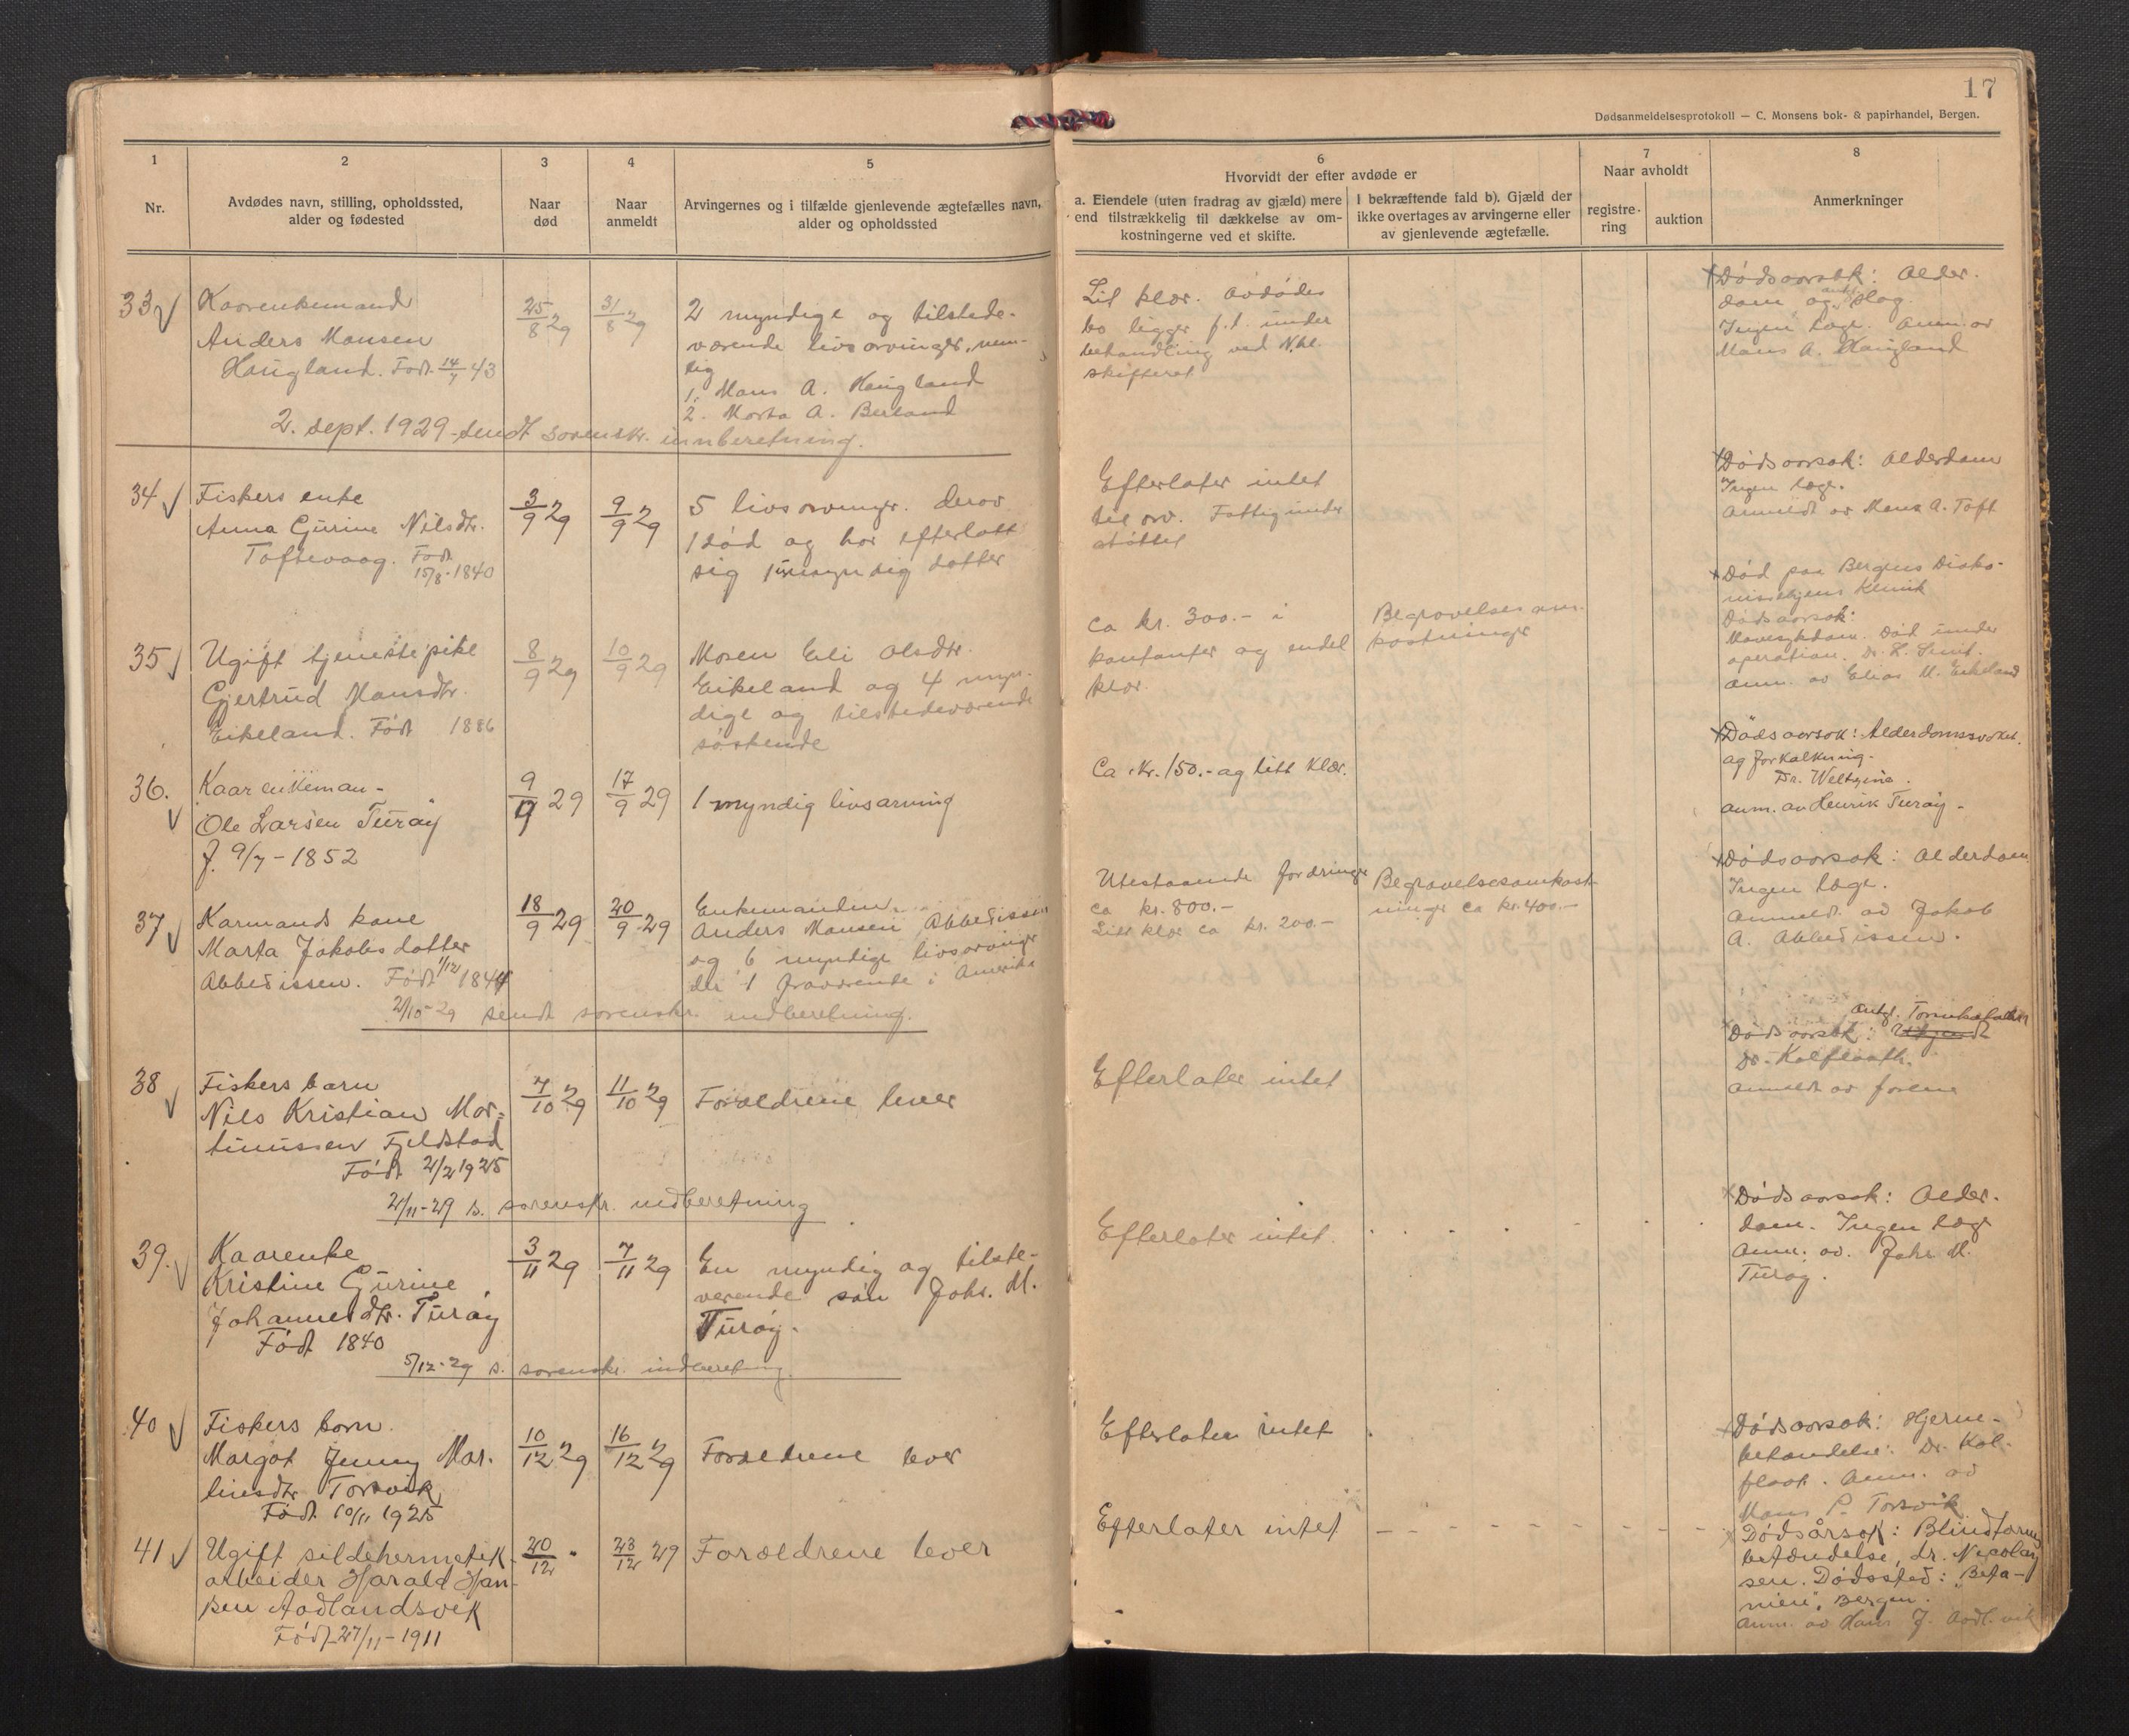 17
Dødsanmeldelsesprotokoll — C. Monsens bok- & papirhandel, Bergen.
1
Nr.
2
Avdødes navn, stilling, opholdssted,
alder og fødested
3
Naar
død
4
Naar
anmeldt
5
Arvingernes og i tilfælde gjenlevende ægtefælles navn,
alder og opholdssted
6
Hvorvidt der efter avdøde er
a. Eiendele (uten fradrag av gjæld) mere
end tilstrækkelig til dækkelse av om-
kostningerne ved et skifte.
I bekræftende fald b). Gjæld der
ikke overtages av arvingerne eller
av gjenlevende ægtefælle.
7
Naar avholdt
registre-
ring
auktion
8
Anmerkninger
33
Kaarenkemand
Anders Monsen
Haugland. Født 14/7 43
25/8 29
31/8 29
2 myndige og tilstede-
værende livsarvinger, nem-
lig
1. Mons A. Haugland
2. Marta A. Berland
Lit klær. Avdødes
bo ligger f.t. under
behandling ved N.hl.
skifteret
Dødsaarsak: Alder-
dom og slag.
Ingen læge. Anm. av
Mons A. Haugland
2. sept. 1929 sendt sorenskr. innberetning.
34
Fiskers enke
Anna Gurine Nilsdtr.
Toftevaag. Født
15/8-1840
3/9 29
9/9 29
5 livsarvinger. derav
1 død og har efterlatt
sig 1 umyndig datter
Efterlater intet
til arv. Fattigunder
støttet
Dødsaarsak: Alderdom
Ingen læge.
Anmeldt av Mons A. Toft
35
Ugift tjenestepike
Gjertrud Monsdtr.
Eikeland. Født 1886
8/9 29
10/9 29
Moren Eli Olsdtr.
Eikeland og 4 myn-
dige og tilstedeværende
søskende
Ca kr. 300.- i
kontanter og endel
klær.
Begravelsesom-
kostninger
Død paa Bergens Diako-
nissehjems Klinik
Dødsaarsak:
Mavesykdom. Død under
operation. Dr.
Anm. av Elias M. Eikeland
36.
Kaarenkeman-
Ole Larsen Turøy
f. 9/7-1852
9/9 29
17/9 29
1 myndig livsarving
Ca. kr. 150.- og litt klær.
Dødsaarsak: Alderdomssvakh.
og forkalkning.
Dr. Weltzine.
anm. av Henrik Turøy.
37
Karmands kone
Marta Jakobsdatter
Abbedissen. Født 1/12 1844
18/9 29
20/9 29
Enkemanden
Anders Monsen Abbedissen
og 6 myndige livsarvinger
der 1 fraværende i Amerika
Utestaaende fordringer
ca kr. 800.-
Litt klær ca kr. 200.-
Begravelsesomkost-
ninger ca kr. 400.-
Dødsaarsak: Alderdom
Ingen læge.
Anmeldt av Jakob
A. Abbedissen.
2/10-29 sendt sorenskr. indberetning.
38
Fiskers barn
Nils Kristian Mar-
tinussen Fjeldstad
Født 2/2 1925
7/10 29
11/10 29
Forældrene lever
Efterlater intet
Dødsaarsak:
Dr. Kalflaath.
Anmeldt av
2/11-29 s. sorenskr. indberetning
39.
Kaarenke
Kristine Gurine
Johannesdtr. Turøy
Født 1840
3/11 29
7/11 29
En myndig og tilste-
værende søn Johs. M.
Turøy.
Efterlater intet.
Dødsaarsak: Alder-
dom. Ingen læge
Anm. av. Johs M.
Turøy.
5/12-29 s. sorenskr. indberetning.
40
Fiskers barn
Margot Jenny Mar-
tinsdtr Torsvik
Født 10/11 1925
10/12 29
16/12 29
Forældrene lever
Efterlater intet
Dødsaarsak: Hjerne-
betændelse. Dr. Kal-
flaat. Anm. av
Mons P. Torsvik
41
Ugift sildehermetik-
arbeider Harald Han-
sen Aadlandsvik
Født 27/11-1911
20/12 "
23/12 29
Forældrene lever
Efterlater intet
Dødsårsak: Blindtarm
betændelse, dr. Nicolay-
sen. Dødssted: "Beta-
nien", Bergen.
Anm. av Hans J. Aadl.vik